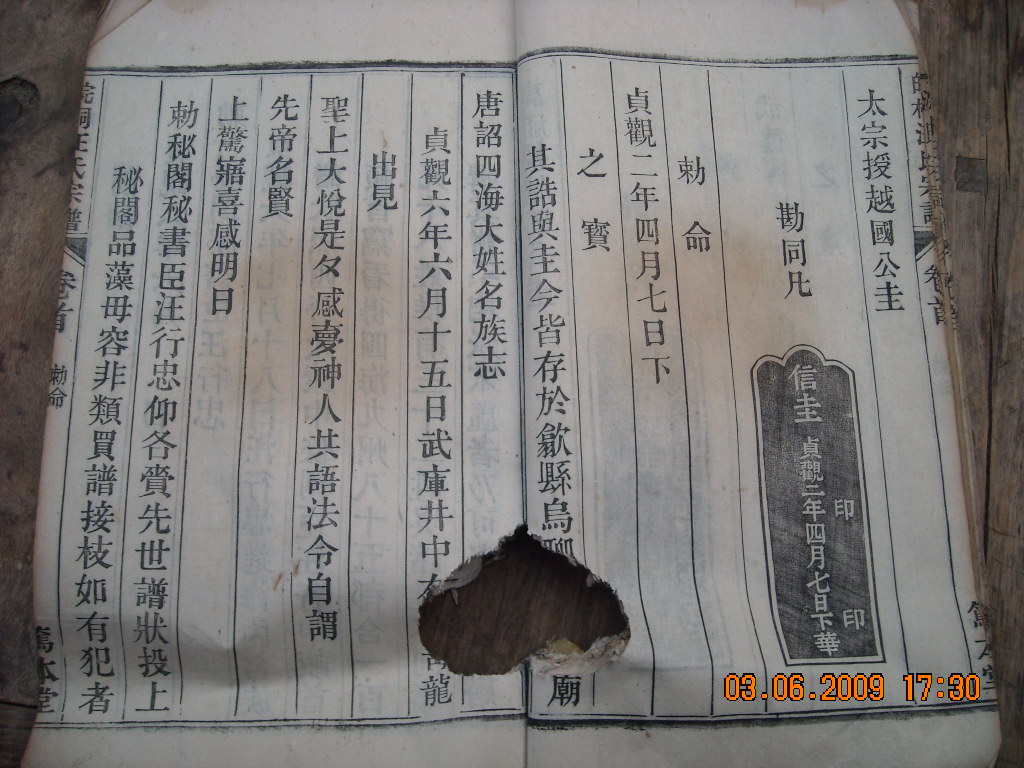 太宗授越國公圭
勘同凡
信圭 貞觀二年四月七日下華
印
印
勅命
貞觀二年四月七日下
之寶
其誥與圭今皆存於歙縣烏聊
廟
唐詔四海大姓名族志
貞觀六年六月十五日武庫井中有青龍
出見
聖上大悅是夕感夢神人共語法令自謂
先帝名賢
上驚寤喜感明日
勅秘閣秘書臣汪行忠仰各賫先世譜狀投上
秘閣品藻毋容非類買譜接枝如有犯者
汪氏宗譜
卷首
勅命
篤本堂
03.06.2009 17:30